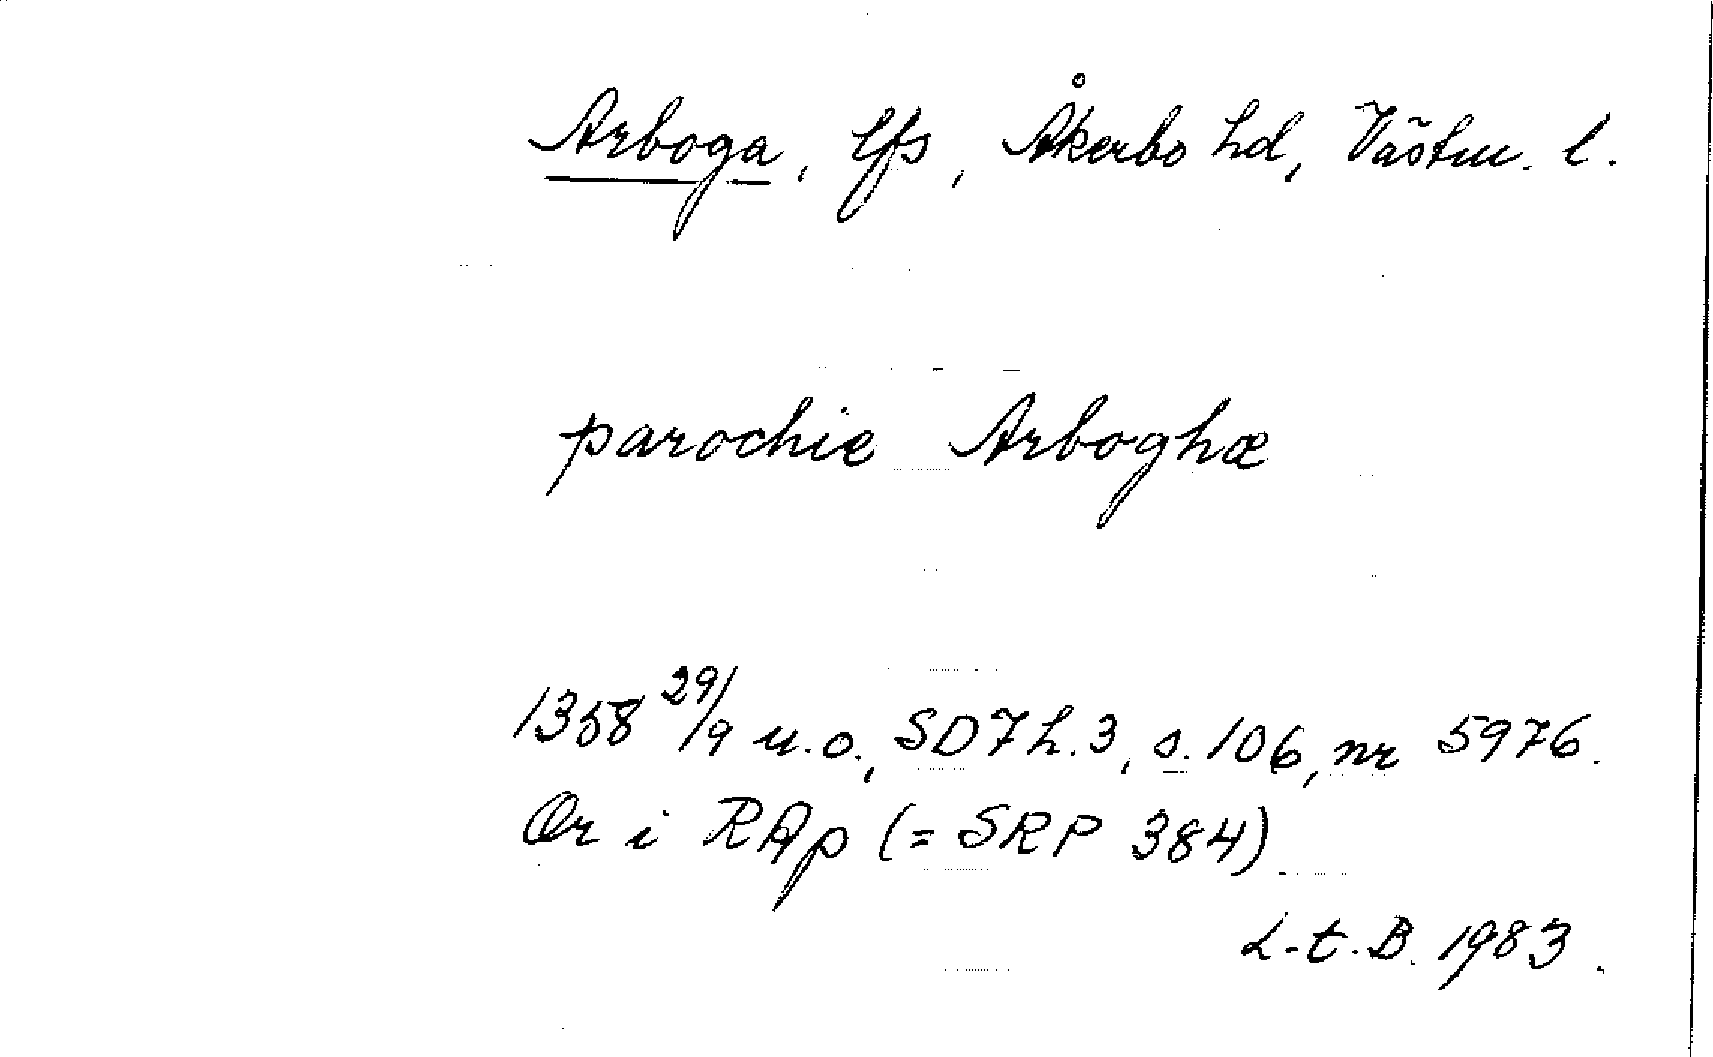 Arboga, lfs, Åkerbo hd, Västm. l.
parochie Arboghæ
1358 29/9 u.o., SD 7 h. 3, s. 106, nr 5976.
Or i RAp (= SRP 384)
L-t. B. 1983.